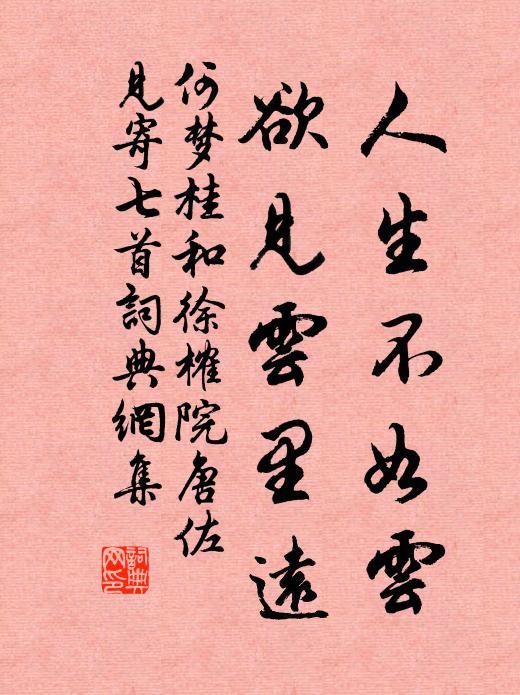 人生不如雲
欲見雲里遠
何梦桂和徐榷院唐佐
見寄七首詞典網集
詞典网印